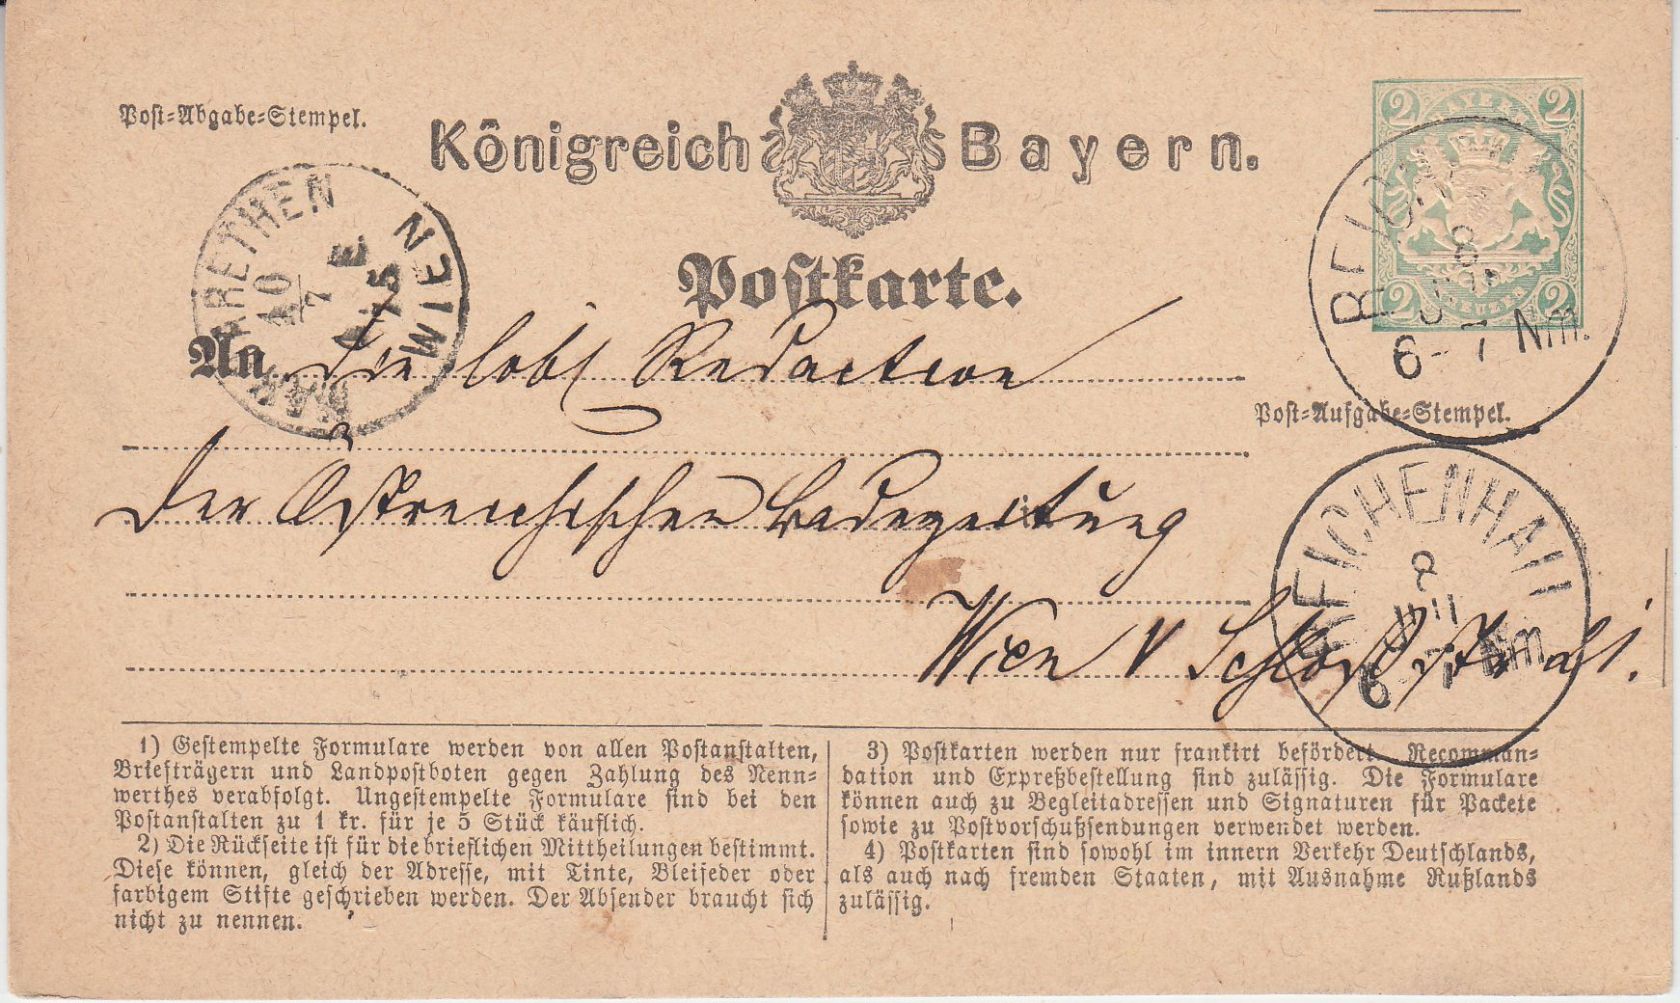 Post-Abgabe-Stempel.
Königreich Bayern.
2 BAYERN 2
2 KREUZER 2
Postkarte.
MARGARETHEN WIEN
10
7
E
75
REICHENHALL
8
6-7 Nm.
An die löbl Redaction
Post-Aufgabe-Stempel.
der Östreichischen Badezeitung
REICHENHALL
6-7 Nm
Wien V
1) Gestempelte Formulare werden von allen Postanstalten,
Briefträgern und Landpostboten gegen Zahlung des Nenn-
werthes verabfolgt. Ungestempelte Formulare sind bei den
Postanstalten zu 1 kr. für je 5 Stück käuflich.
2) Die Rückseite ist für die brieflichen Mittheilungen bestimmt.
Diese können, gleich der Adresse, mit Tinte, Bleifeder oder
farbigem Stifte geschrieben werden. Der Absender braucht sich
nicht zu nennen.
3) Postkarten werden nur frankirt befördert. Recomman-
dation und Expreßbestellung sind zulässig. Die Formulare
können auch zu Begleitadressen und Signaturen für Packete
sowie zu Postvorschußsendungen verwendet werden.
4) Postkarten sind sowohl im innern Verkehr Deutschlands,
als auch nach fremden Staaten, mit Ausnahme Rußlands
zulässig.